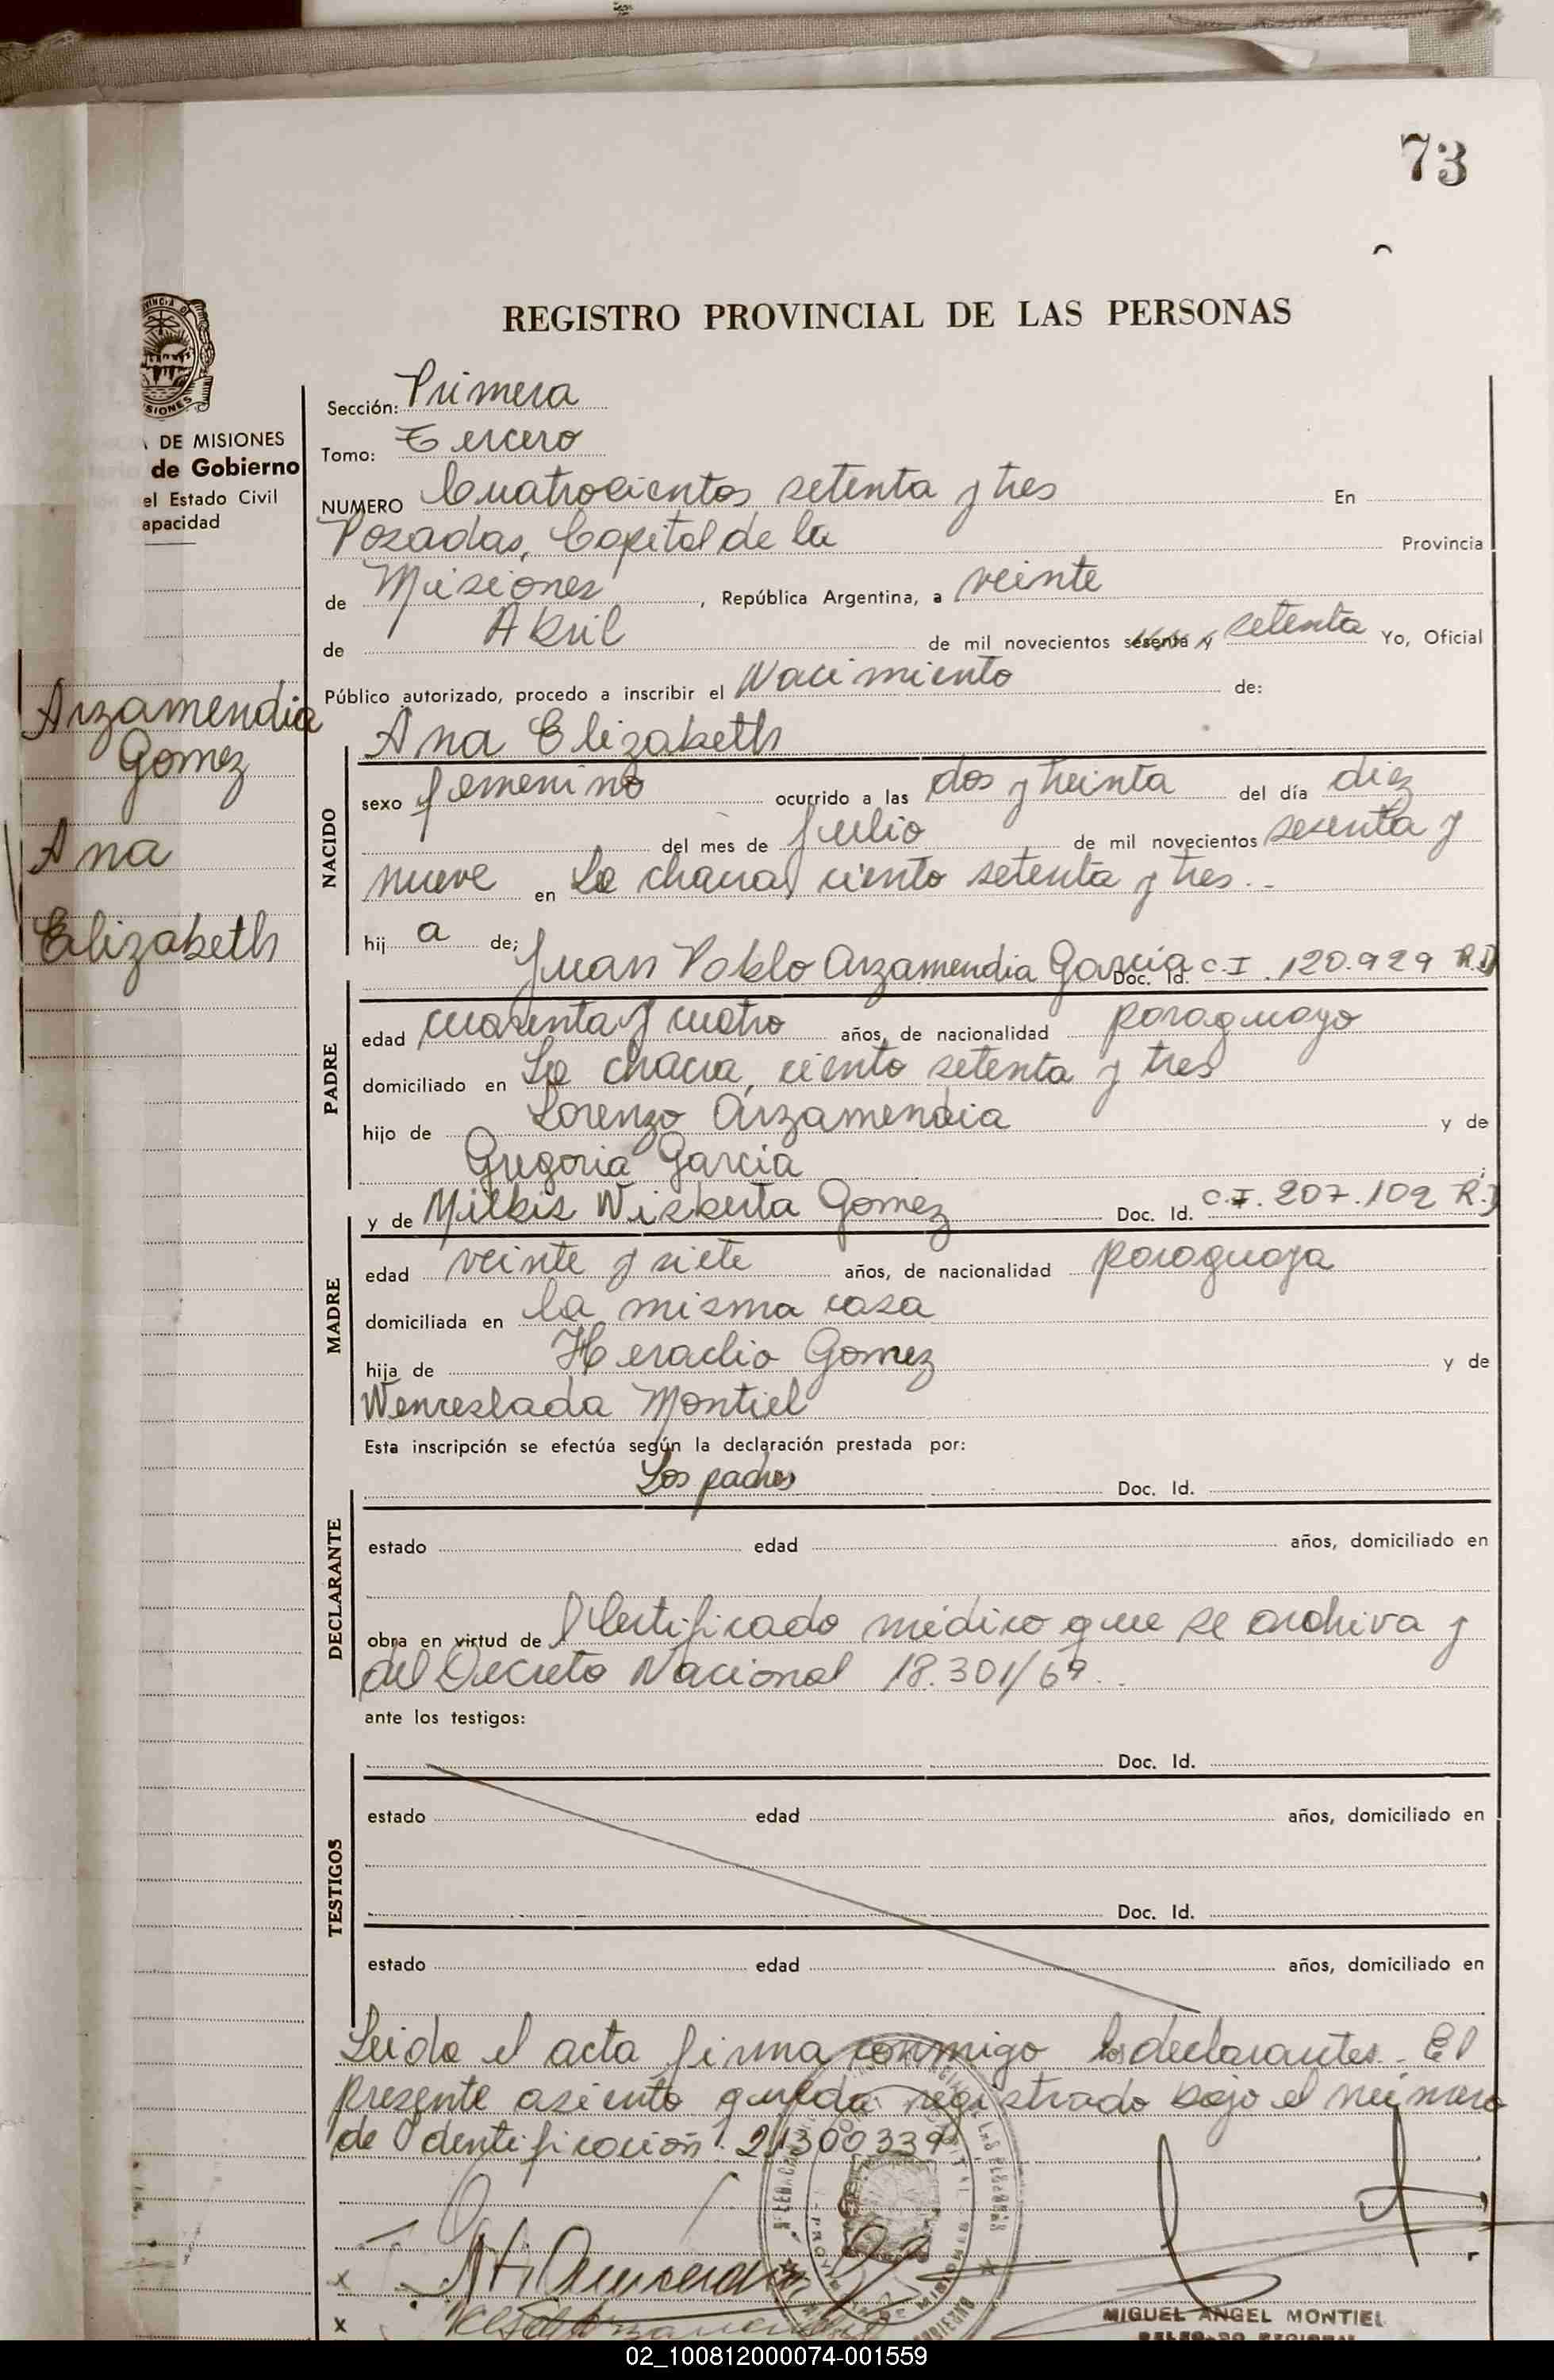 73
REGISTRO PROVINCIAL DE LAS PERSONAS
DE MISIONES
de Gobierno
el Estado Civil
apacidad
Arzamendia
Gomez
Ana
Elizabeth
Sección: Primera
Tomo: Tercero
NUMERO Cuatrocientos setenta y tres En
Posadas, Capital de la Provincia
de Misiones, República Argentina, a veinte
de Abril de mil novecientos sesenta y setenta Yo, Oficial
Público autorizado, procedo a inscribir el Nacimiento de:
Ana Elizabeth
NACIDO
sexo femenino ocurrido a las dos y treinta del día diez
del mes de Julio de mil novecientos sesenta y
nueve en La chacra ciento setenta y tres.-
hij a de; Juan Pablo Arzamendia Garcia Doc. Id. C.I. 120.929 R.I
PADRE
edad cuarenta y cuatro años, de nacionalidad paraguayo
domiciliado en La chacra, ciento setenta y tres
hijo de Lorenzo Arzamendia y de
Gregoria Garcia
y de Milkis Wisberta Gomez Doc. Id. C.I. 207.102 R.I
MADRE
edad veinte y siete años, de nacionalidad paraguaya
domiciliada en la misma casa
hija de Heraclio Gomez y de
Wenceslada Montiel
Esta inscripción se efectúa según la declaración prestada por:
Los padres Doc. Id.
DECLARANTE
estado edad años, domiciliado en
obra en virtud de Certificado médico que se archiva y
del Decreto Nacional 18.301/69..
ante los testigos:
TESTIGOS
Doc. Id.
estado edad años, domiciliado en
Doc. Id.
estado edad años, domiciliado en
Leida el acta firma conmigo los declarantes.- El
presente asiento queda registrado bajo el número
de Identificación: 21300339
x
x
MIGUEL ANGEL MONTIEL
DELEGADO REGIONAL
02_100812000074-001559